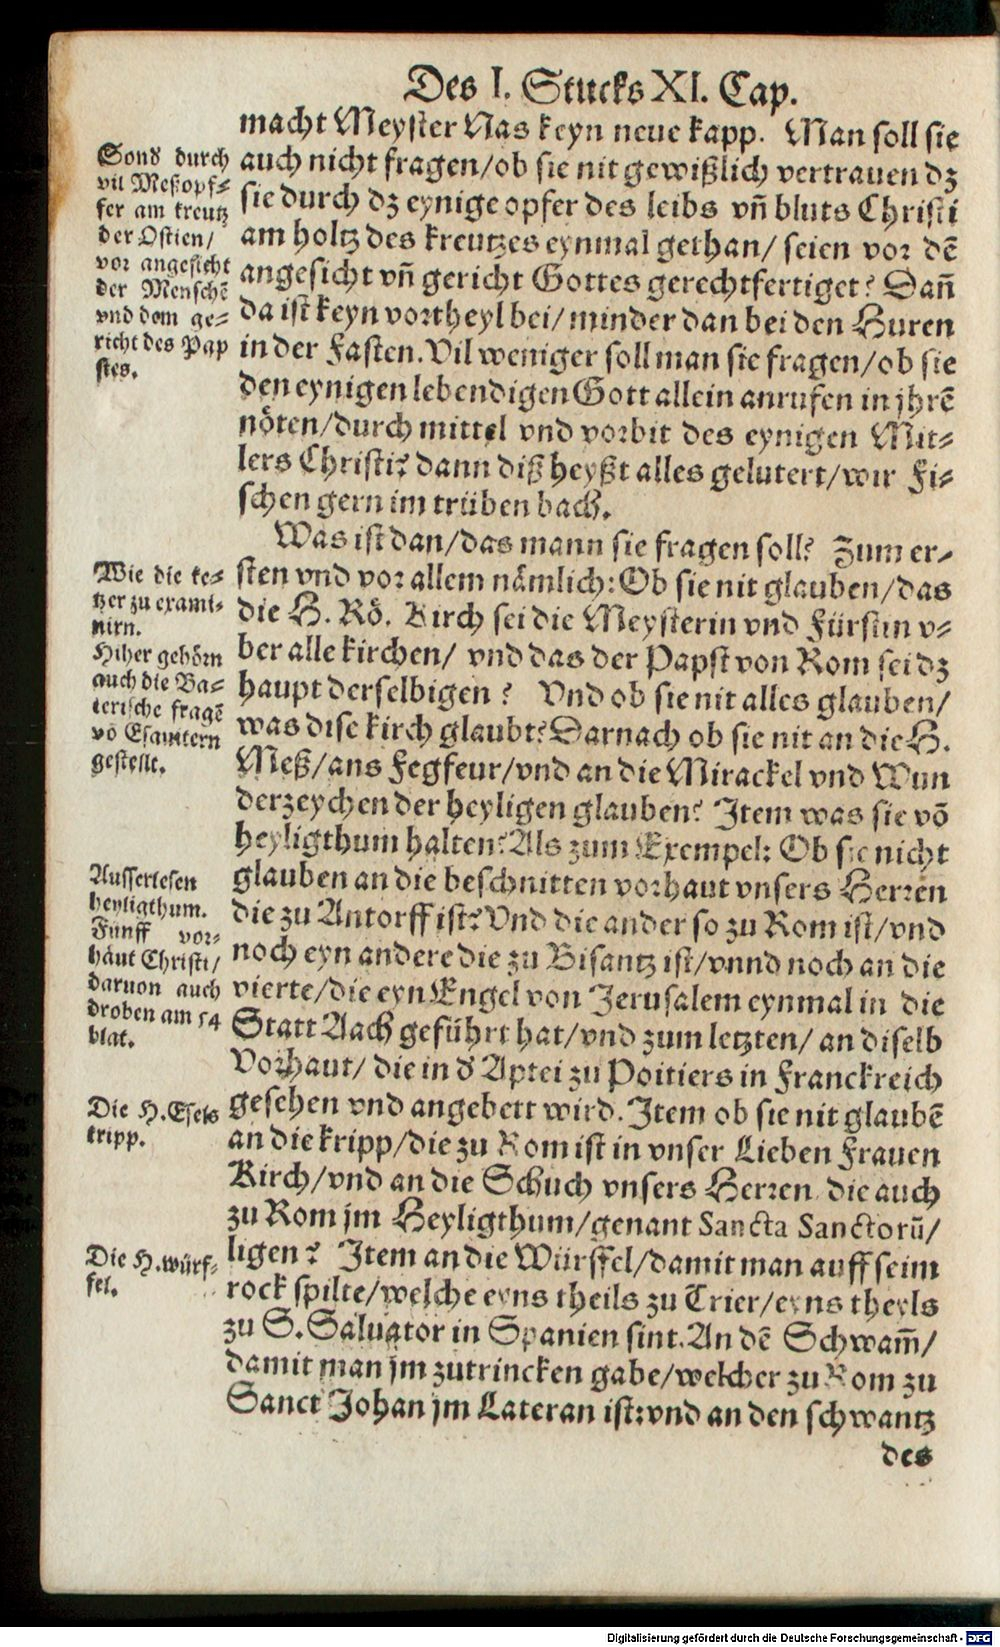 Des I. Stucks XI. Cap.
macht Meyster Nas keyn neue kapp. Man soll sie
auch nicht fragen/ob sie nit gewißlich vertrauen dz
sie durch dz eynige opfer des leibs vñ bluts Christi
am holtz des kreutzes eynmal gethan/ seien vor dē
angesicht vñ gericht Gottes gerechtfertiget? Dañ
da ist keyn vortheyl bei/ minder dan bei den Huren
in der Fasten. Vil weniger soll man sie fragen/ob sie
den eynigen lebendigen Gott allein anrufen in jhrē
nöten/durch mittel vnd vorbit des eynigen Mit-
lers Christi? dann diß heyßt alles gelutert/wir Fi-
schen gern im trüben bach.
Sond durch
vil Meßopf-
fer am kreutz
der Ostien/
vor angesicht
der Menschē
vnd dem ge-
richt des Pap
stes.
Was ist dan/das mann sie fragen soll? Zum er-
sten vnd vor allem nämlich: Ob sie nit glauben/das
die H. Rö. Kirch sei die Meysterin vnd Fürstin v-
ber alle kirchen/ vnd das der Papst von Rom sei dz
haupt derselbigen? Vnd ob sie nit alles glauben/
was dise kirch glaubt? Darnach ob sie nit an die H.
Meß/ans Fegfeur/vnd an die Mirackel vnd Wun
derzeychen der heyligen glauben? Item was sie vō
heyligthum halten? Als zum Exempel: Ob sie nicht
glauben an die beschnitten vorhaut vnsers Herren
die zu Antorff ist? Vnd die ander so zu Rom ist/vnd
noch eyn andere die zu Bisantz ist/vnnd noch an die
vierte/die eyn Engel von Jerusalem eynmal in die
Statt Aach geführt hat/vnd zum letzten/ an diselb
Vorhaut/ die in d' Aptei zu Poitiers in Franckreich
gesehen vnd angebett wird. Item ob sie nit glaubē
an die kripp/die zu Rom ist in vnser Lieben Frauen
Kirch/vnd an die Schuch vnsers Herren die auch
zu Rom jm Heyligthum/genant Sancta Sanctorū/
ligen? Item an die Würffel/damit man auff seim
rock spilte/welche eyns theils zu Trier/eyns theyls
zu S. Saluator in Spanien sint. An dē Schwam̄/
damit man jm zutrincken gabe/welcher zu Rom zu
Sanct Johan jm Lateran ist: vnd an den schwantz
des
Wie die ke-
tzer zu exami-
nirn.
Hiher gehörn
auch die Ba-
ierische fragē
vō Esauitern
gestellt.
Ausserlesen
heyligthum.
Fünff vor-
häut Christi/
daruon auch
droben am 54
blat.
Die H. Esels
kripp.
Die H. würf-
fel.
Digitalisierung gefördert durch die Deutsche Forschungsgemeinschaft - DFG